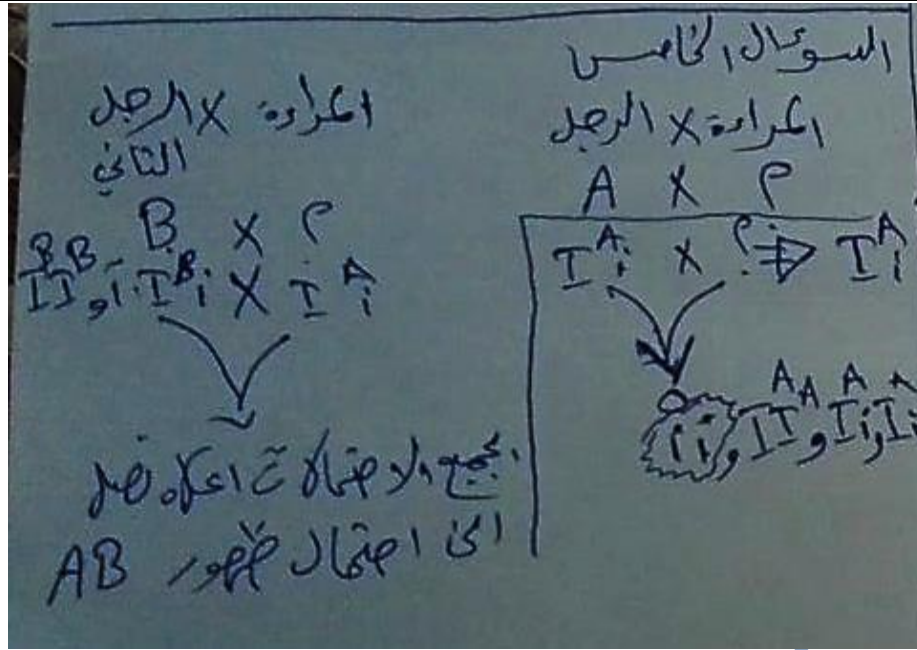 السؤال الخامس
المراءة X الرجل
A X ؟
I^A i X ؟ ⇒ I^A i
ii و I^A I^A و I^A i و I^A i
المراءة X الرجل
الثاني
B X ؟
I^B I^B أو I^B i X I^A i
بجميع الاحتمالات اعلاه نصل
الى احتمال ظهور AB